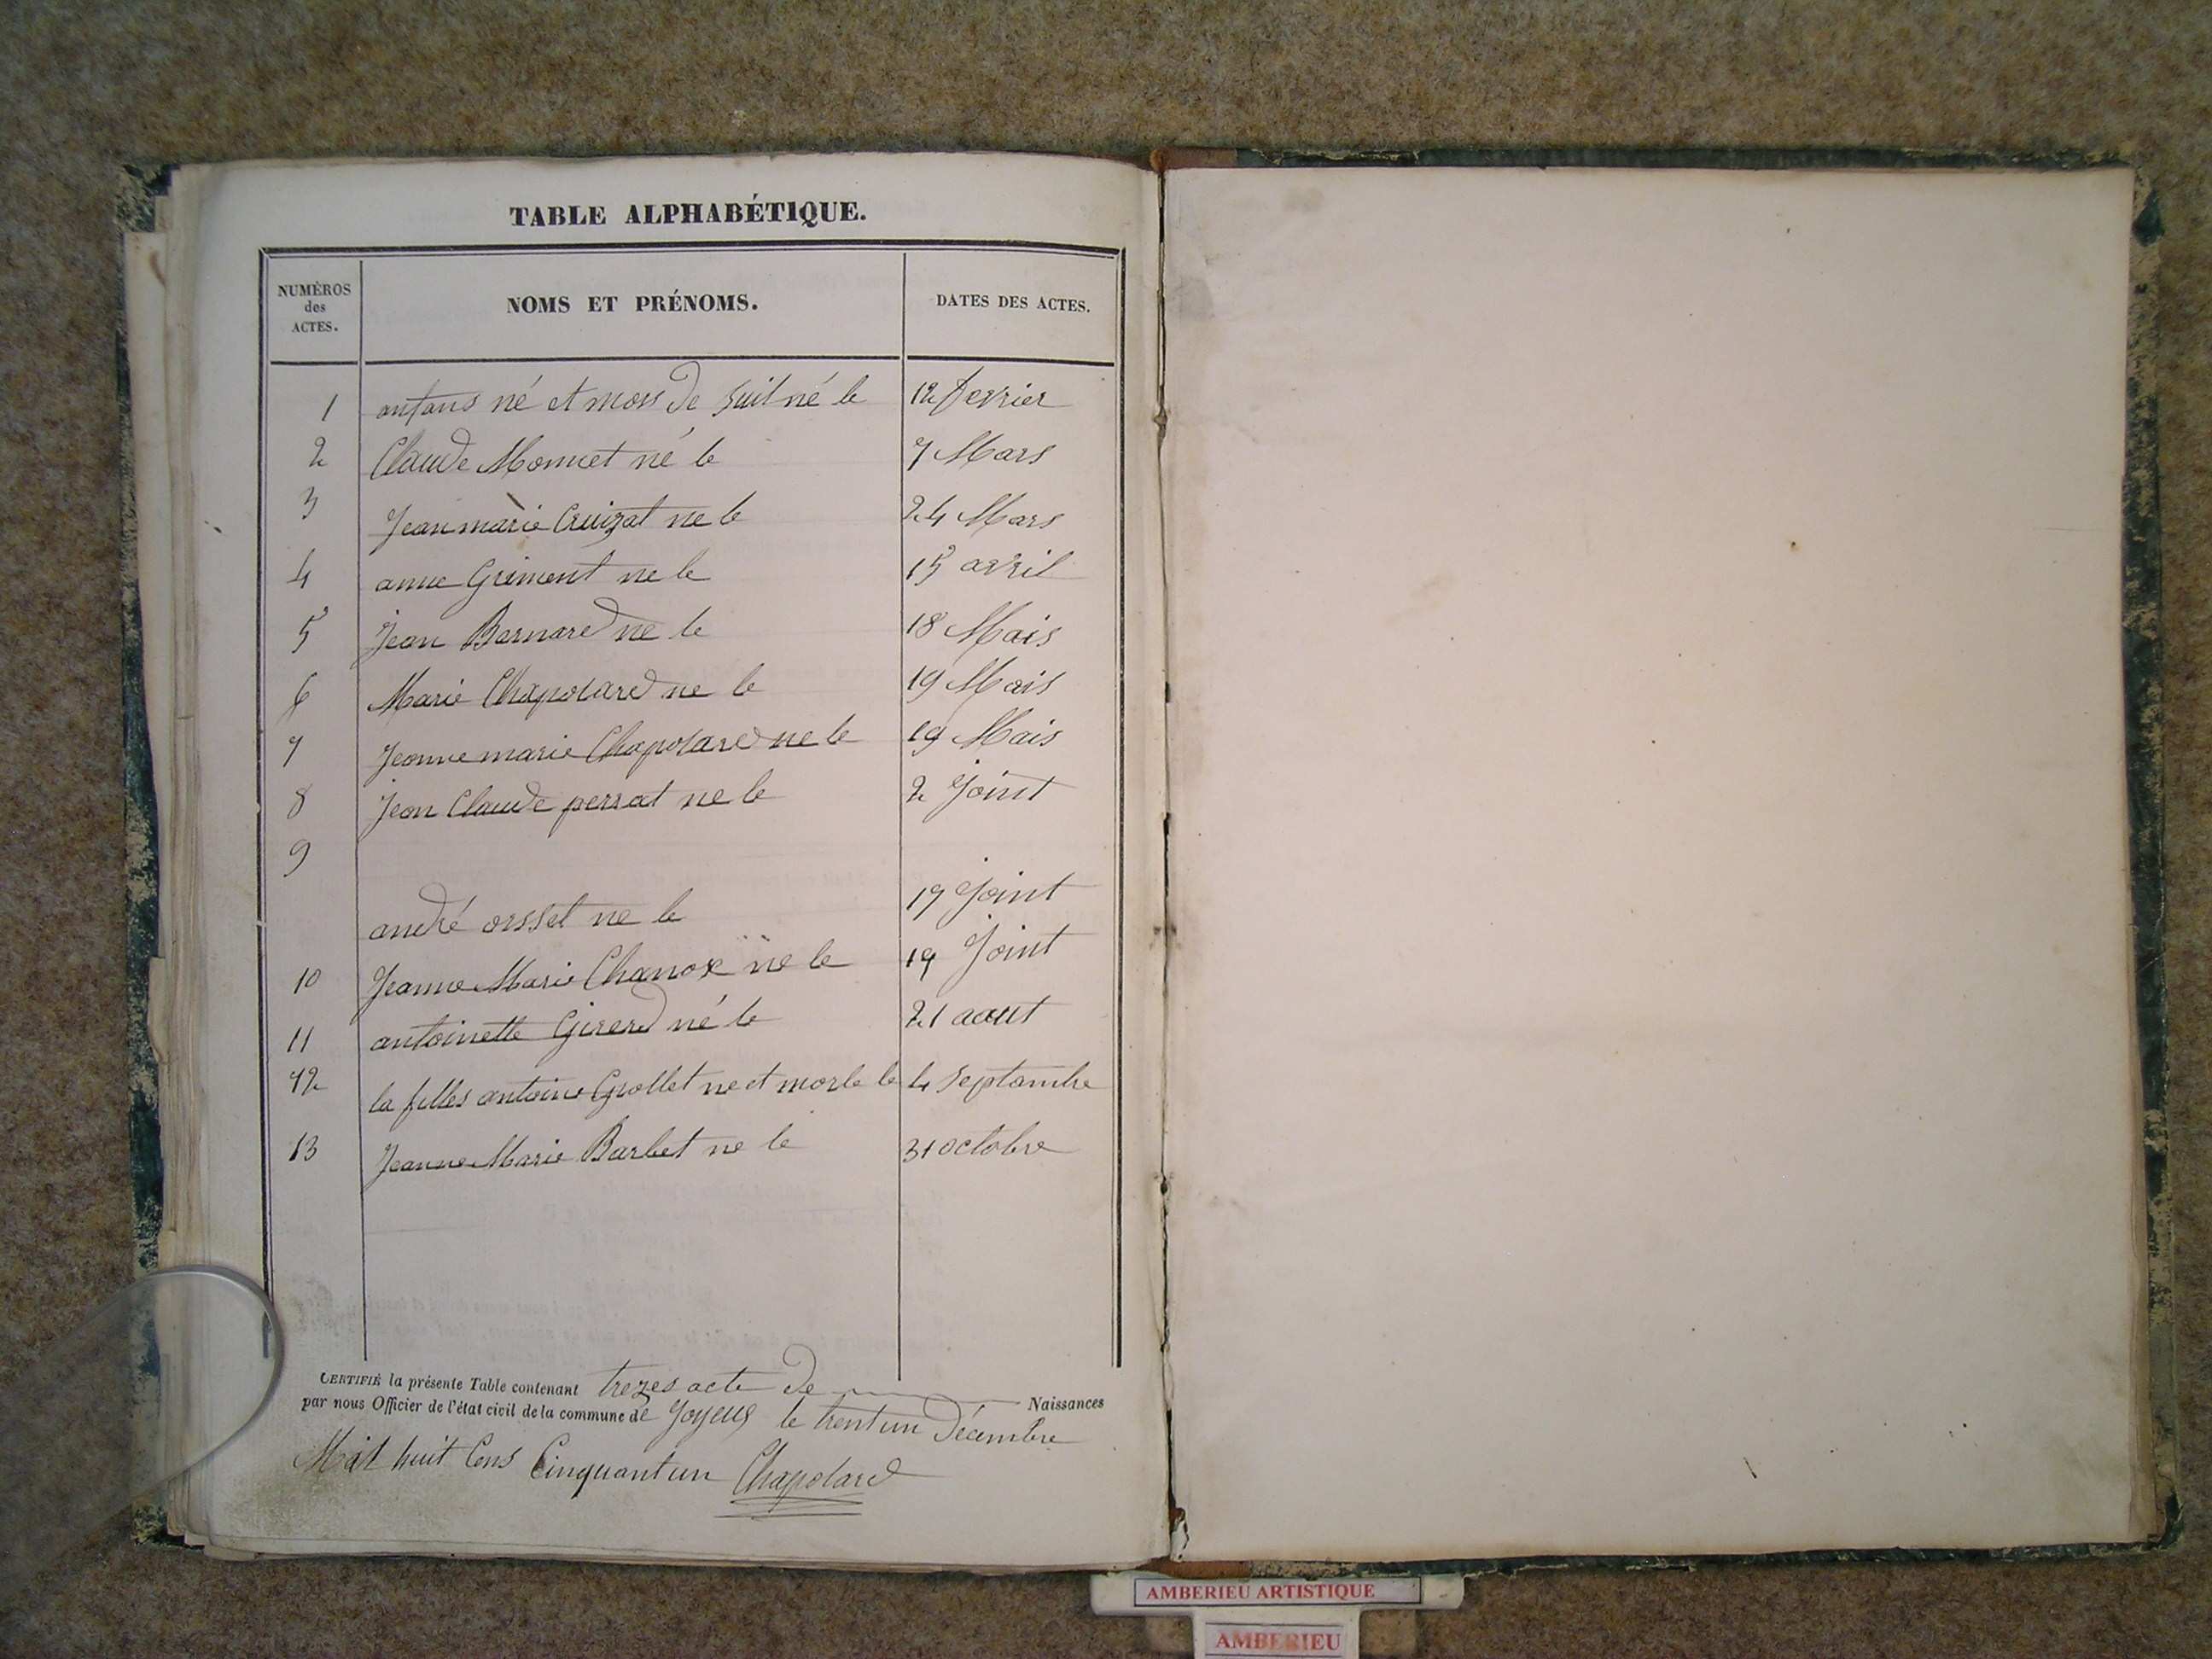 TABLE ALPHABÉTIQUE.
NUMÉROS des ACTES. NOMS ET PRÉNOMS. DATES DES ACTES.
1 anfans né et mors de suit né le 12 fevrier
2 Claude Monnet né le 7 Mars
3 Jean marie Cruizat ne le 24 Mars
4 anne Griment ne le 15 avril
5 Jean Barnard ne le 18 Mais
6 Marie Chapolard ne le 19 Mais
7 Jeanne marie Chapolard ne le 19 Mais
8 Jean Claude perrat ne le 2 Joint
9
andré orssel ne le 17 Joint
10 Jeanne Marie Chanox ne le 19 Joint
11 antoinette Girerd né le 21 aout
12 la filles antoine Grollet ne et morle le 4 septambre
13 Jeanne Marie Barbet ne le 31 octobre
CERTIFIÉ la présente Table contenant trezes acte de Naissances
par nous Officier de l'état civil de la commune de Joyeux le trentun Décembre
Mil huit Cens Cinquantun Chapolard
AMBERIEU ARTISTIQUE
AMBERIEU